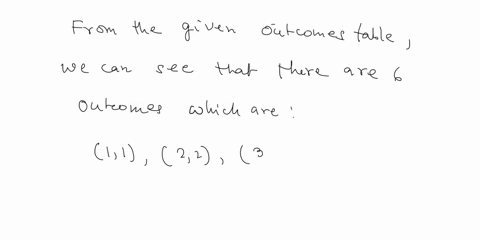 From the given outcomes table,
we can see that there are 6
outcomes which are:
(1,1), (2,2), (3